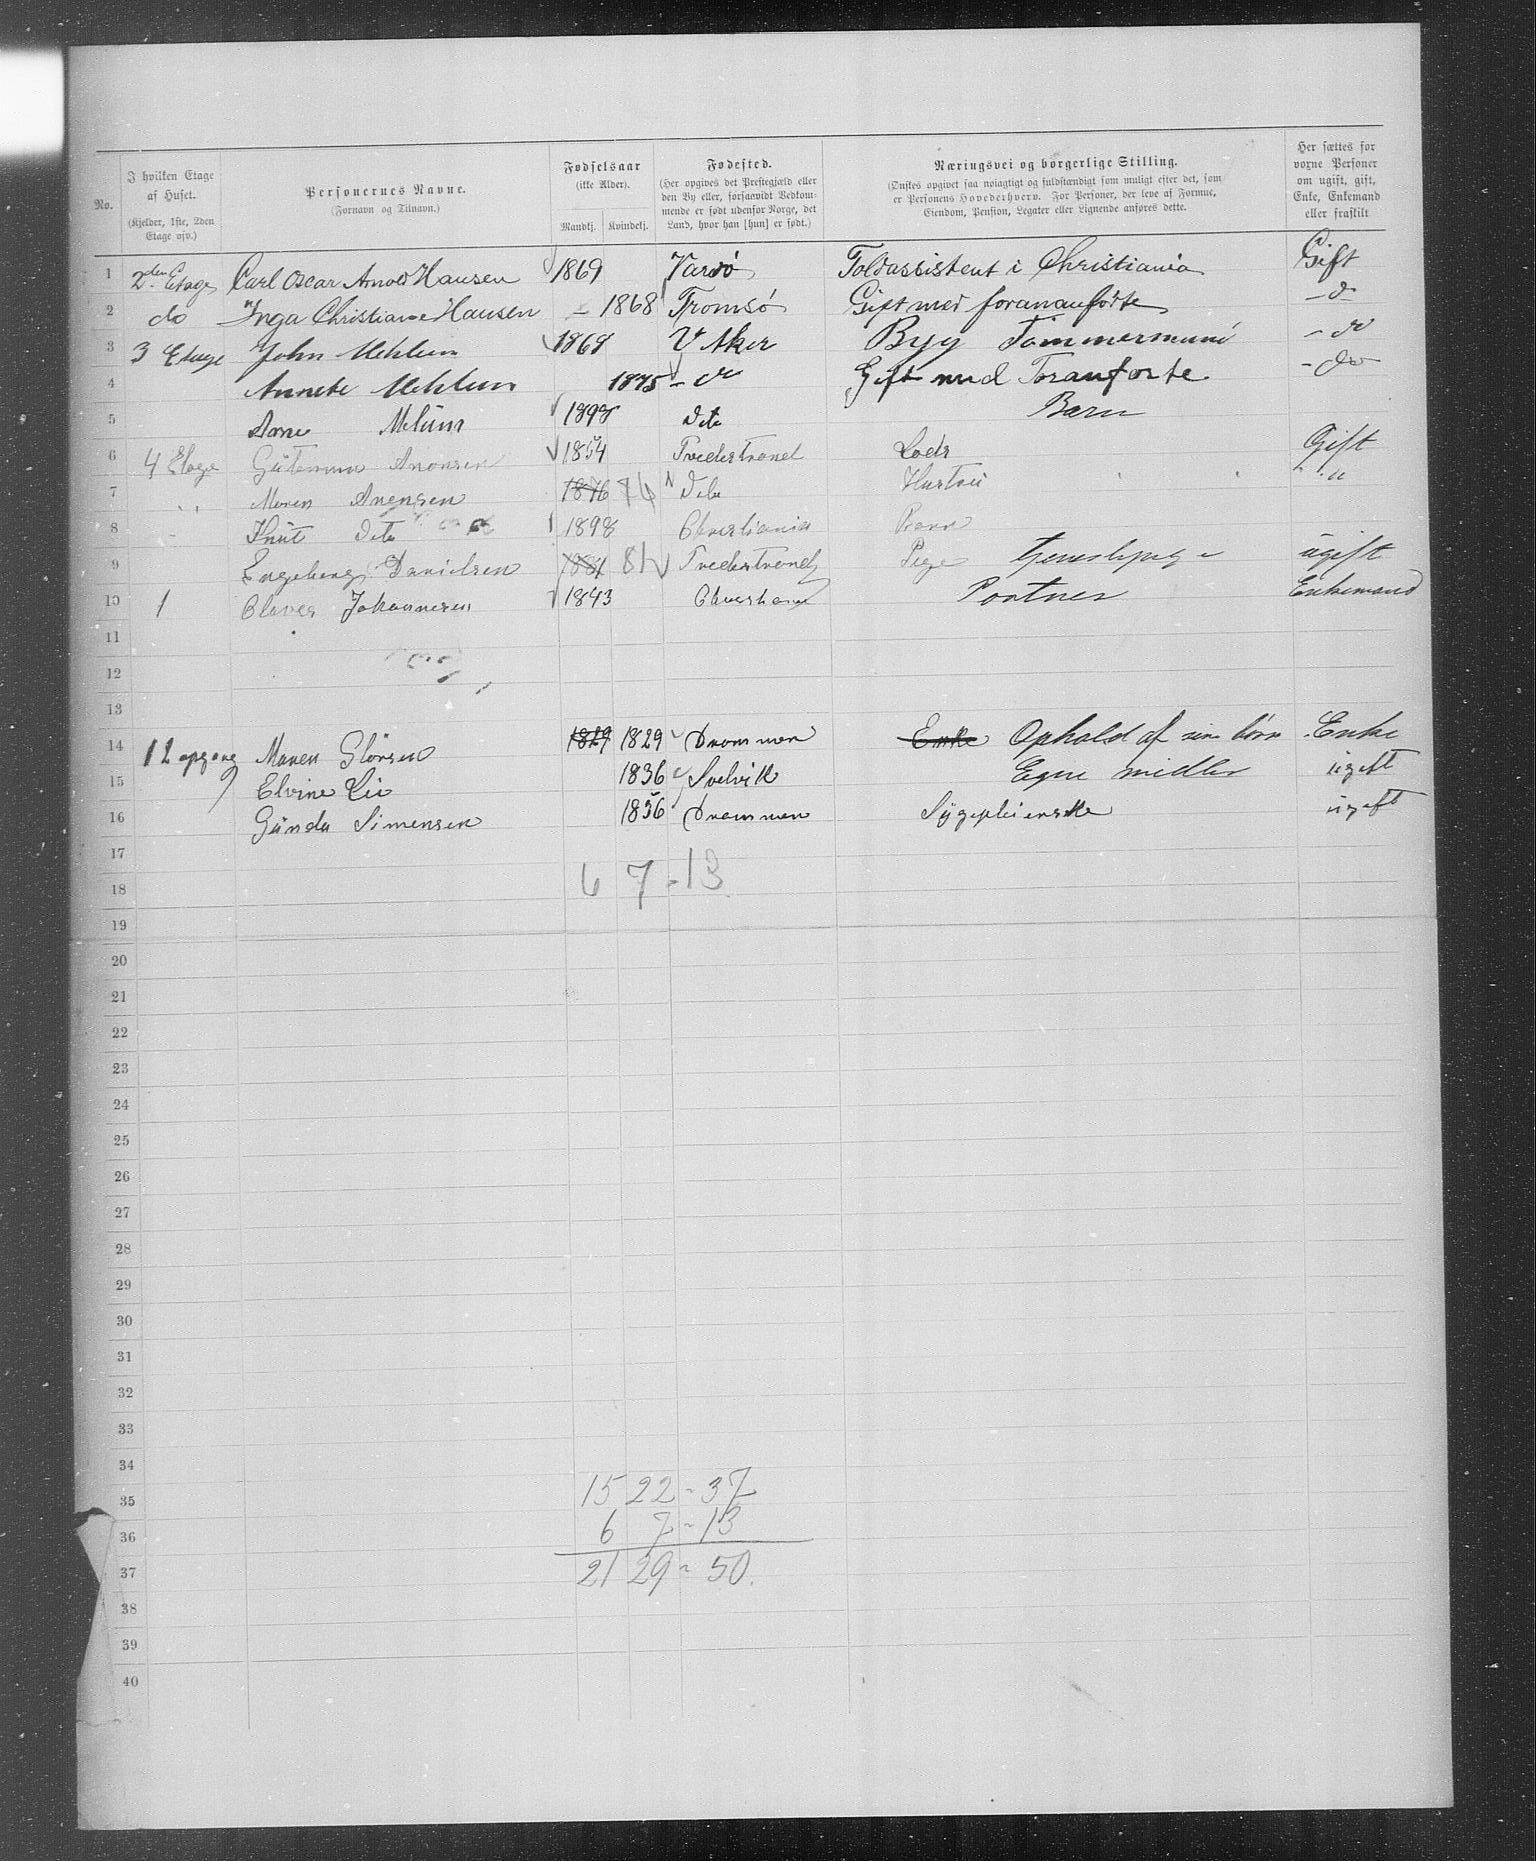 No. | I hvilken Etage af Huset. (Kjelder, 1ste, 2den Etage osv.) | Personernes Navne. (Fornavn og Tilnavn.) | Fødselsaar (ikke Alder). Mandkj. Kvindekj. | Fødested. (Her opgives det Prestegjæld eller den By eller, forsaavidt Vedkommende er født udenfor Norge, det Land, hvor han [hun] er født.) | Næringsvei og borgerlige Stilling. (Ønskes opgivet saa nøiagtigt og fuldstændigt som muligt efter det, som er Personens Hovederhverv. For Personer, der leve af Formue, Eiendom, Pension, Legater eller Lignende anføres dette. | Her sættes for vorne Personer om ugift, gift, Enke, Enkemand eller fraskilt
1 2den Etage Carl Oscar Arnold Hansen 1869 Vardö Toldassistent i Christiania Gift
2 do Inga Christiane Hansen 1868 Tromsö Gift med forananførte - do
3 3 Etage John Mehlum 1868 V Aker Byg Tømmermand - do
4 Annete Mehlum 1875 - do Gift med Foranførte - do
5 Arne Melum 1898 Dito Barn
6 4 Etage Anonsen 1854 Tvedestrand Lods Gift
7 Maren Anensen 1876 76 Dito Hustru "
8 Knut Dito 1898 Christiania Barn
9 Engeborg Danielsen 1881 81 Tvedestrand Pige Tjenestepige ugift
10 1 Olaves Johannesen 1843 Christiania Portner Enkemand
11
12
13
14 1 2 opgang Maren Glörsen 1829 1829 Drammen Enke Ophold af sine börn Enke
15 Elvine Lie 1836 Svelvik Egne midler ugift
16 Gunda Simensen 1856 Drammen Sygepleierske ugift
17
18 6 7 - 13
19
20
21
22
23
24
25
26
27
28
29
30
31
32
33
34
35 15 22 - 37
36 6 7 - 13
37 21 29 - 50.
38
39
40